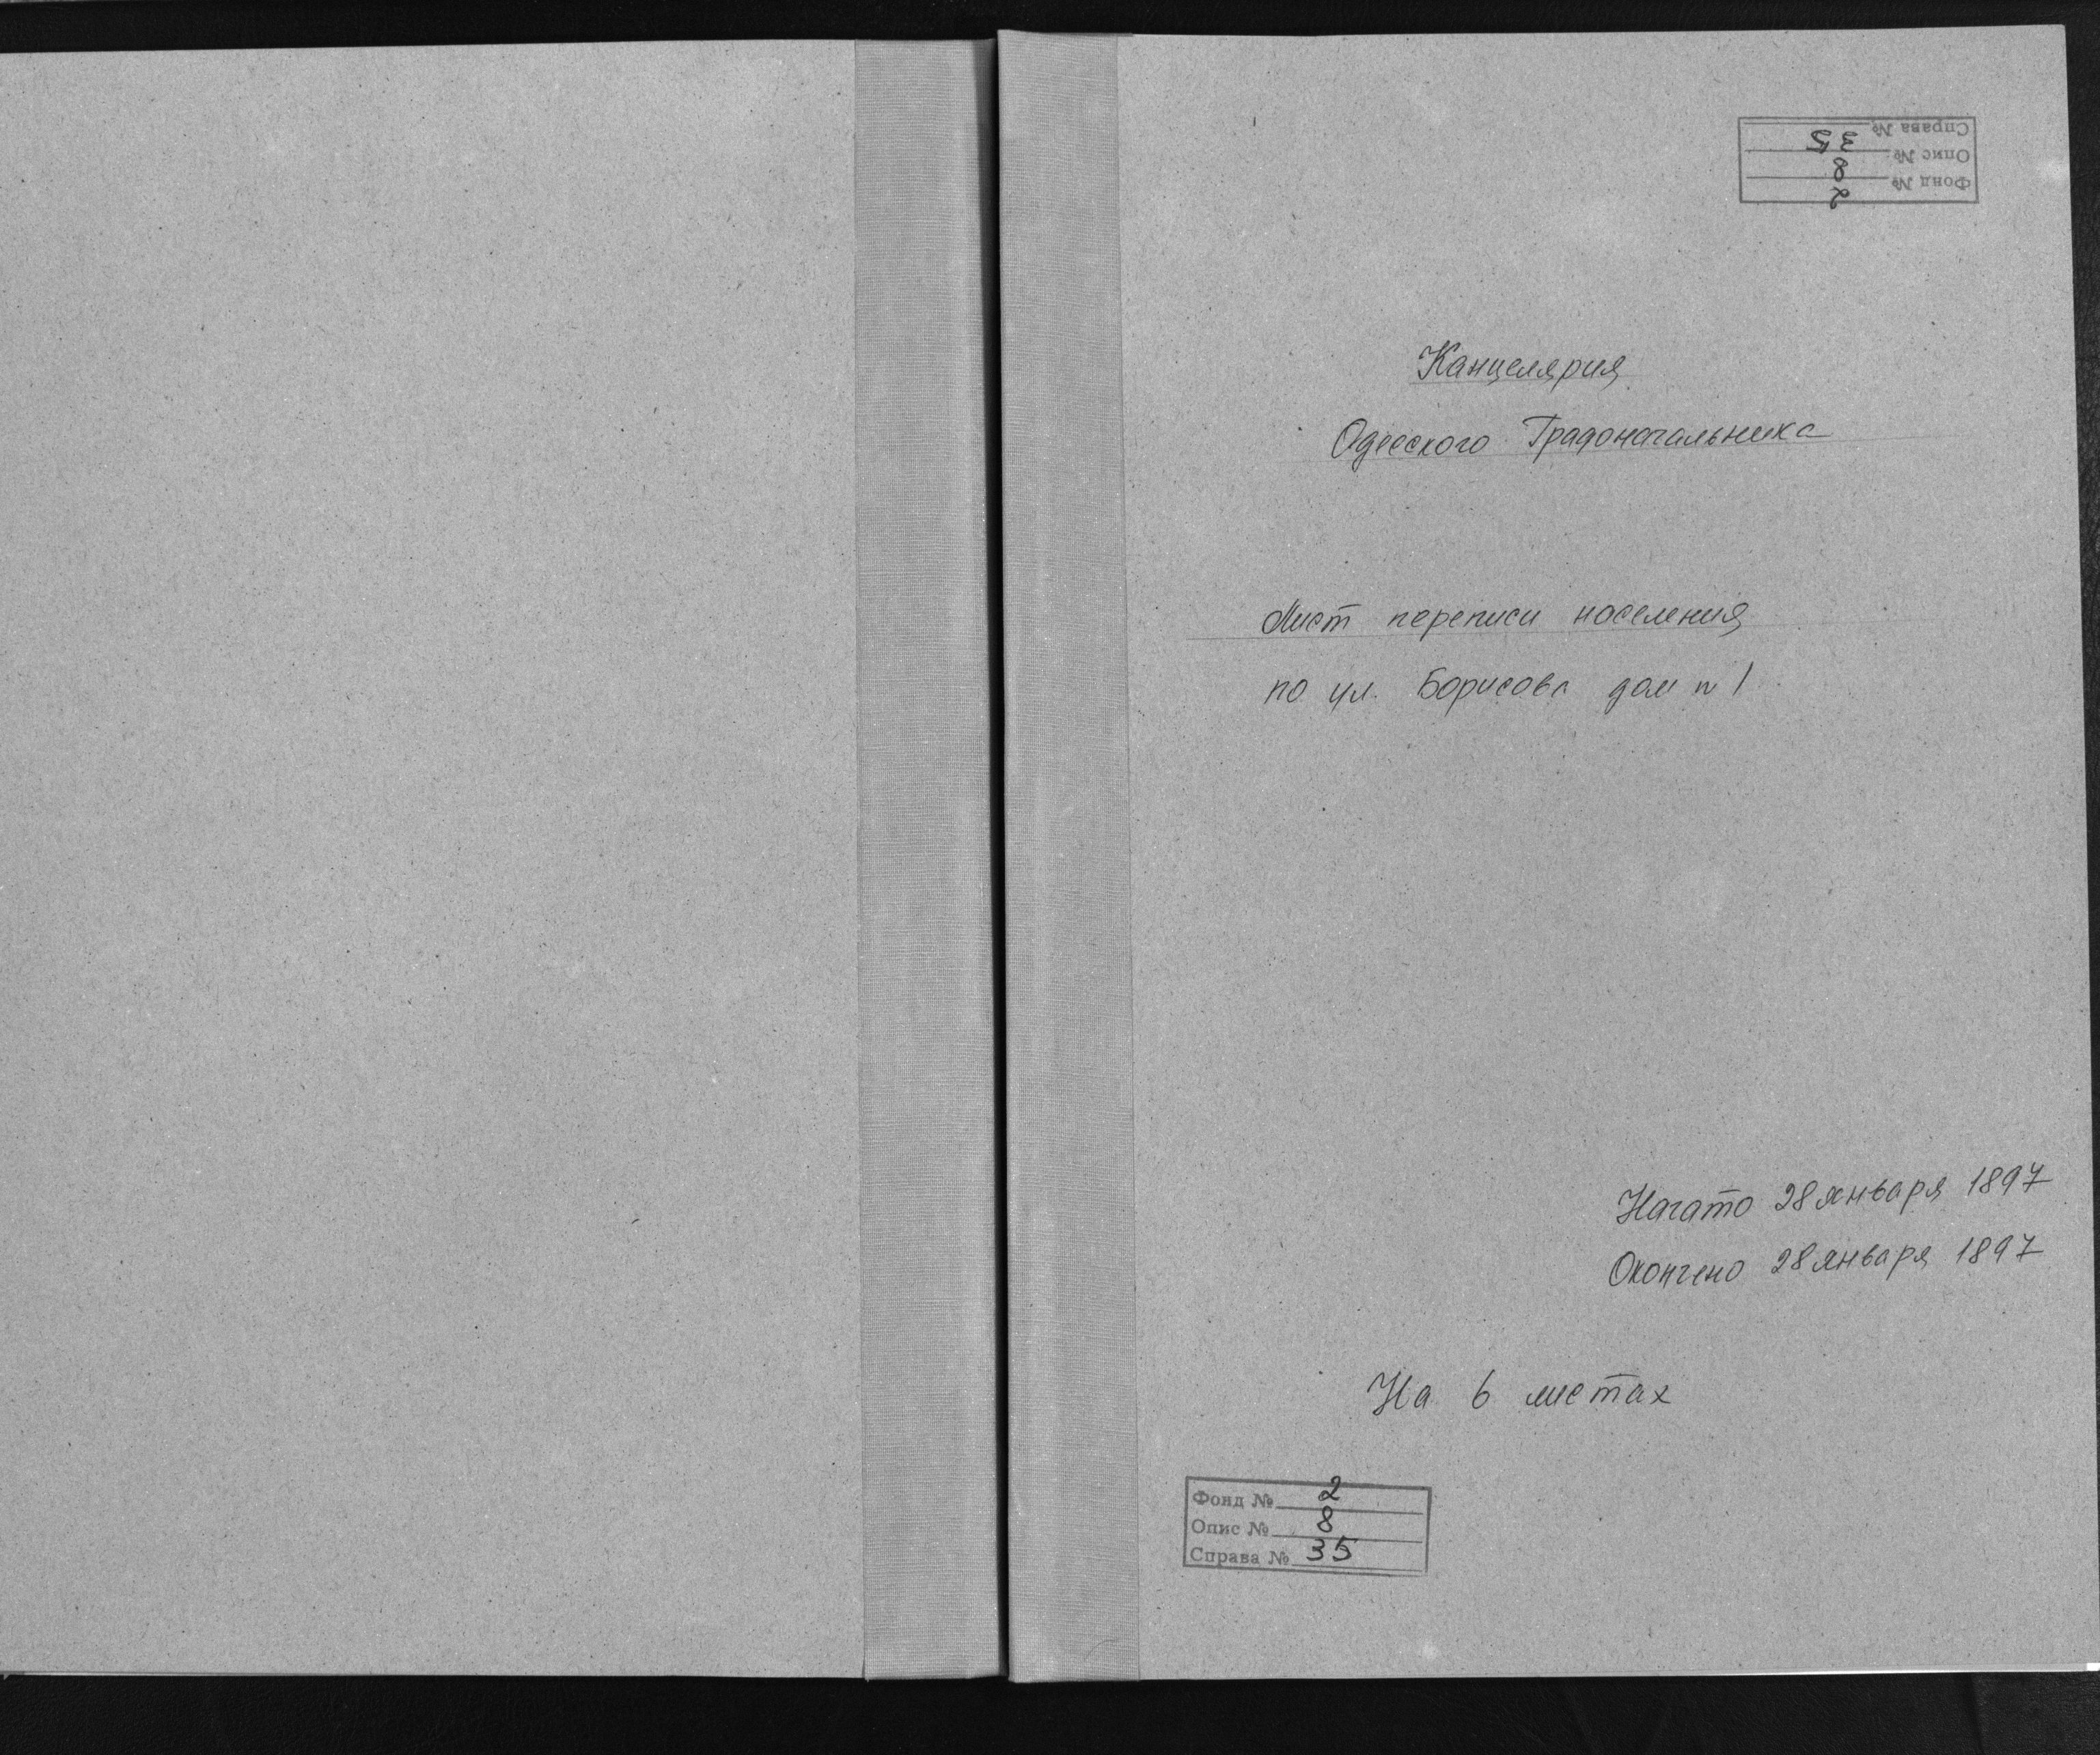 Справа № 35
Опис № 8
Фонд № 2
Канцелярия
Одесского Градоначальника
Лист переписи населения
по ул. Борисова дом n 1
Начато 28 января 1897
Окончено 28 января 1897
На 6 листах
Фонд № 2
Опис № 8
Справа № 35